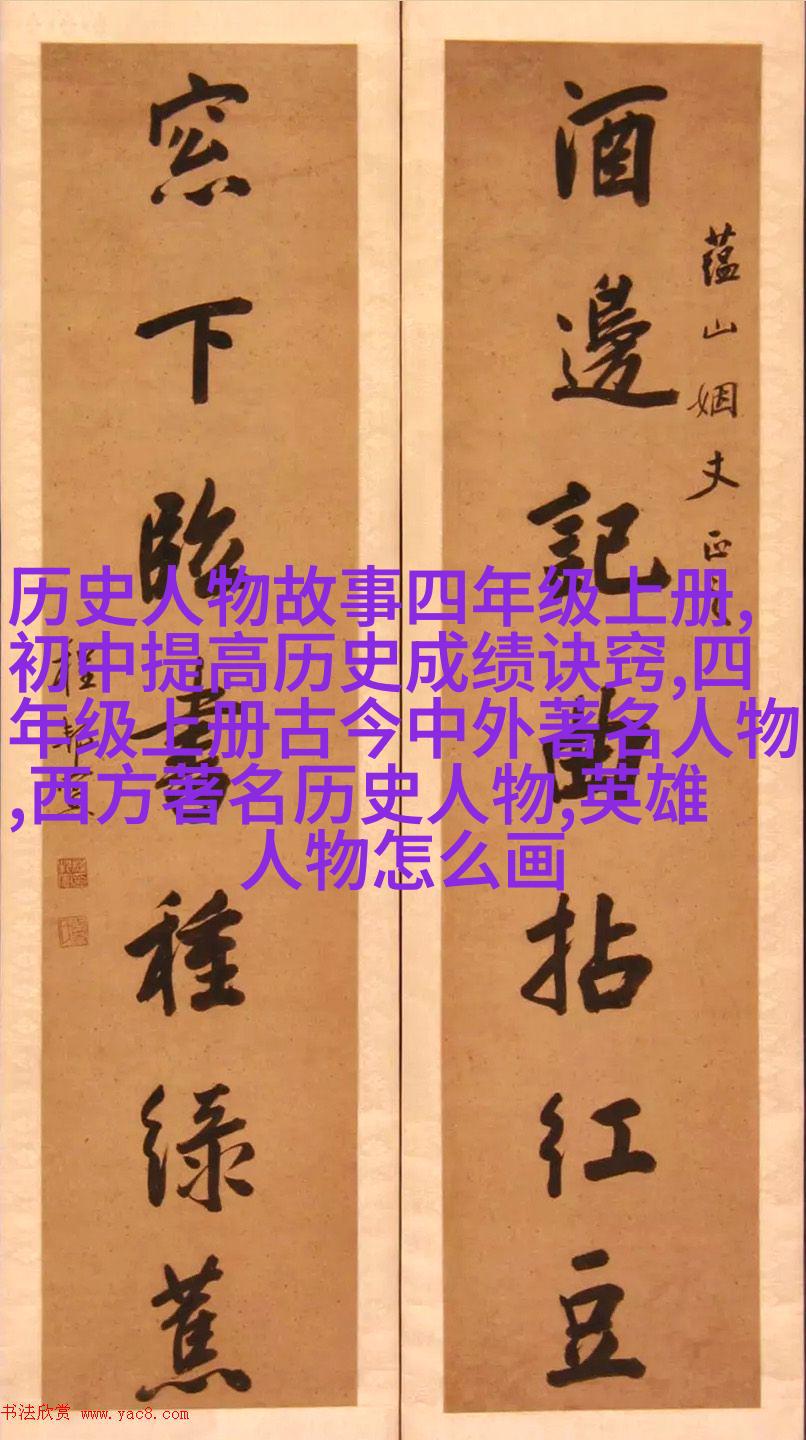 蘊山姻丈正
酒邊記曲拈紅豆
窓下臨書種綠蕉
历史人物故事四年级上册,
初中提高历史成绩诀窍,四
年级上册古今中外著名人物
,西方著名历史人物,英雄
人物怎么画
书法欣赏 www.yac8.com